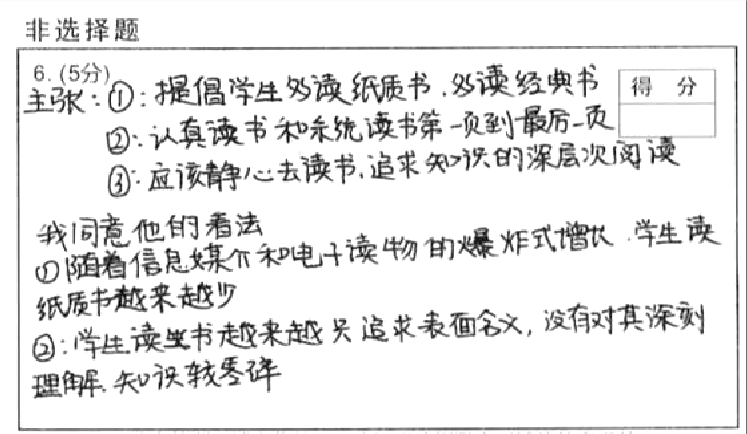 非选择题
6.(5分)
得 分
主张:①:提倡学生多读纸质书,多读经典书
②:认真读书和系统读书第一页到最后一页
③:应该静心去读书,追求知识的深层次阅读
我同意他的看法
①随着信息媒介和电子读物的爆炸式增长.学生读
纸质书越来越少
②:学生读书越来越只追求表面含义,没有对其深刻
理解.知识较零碎